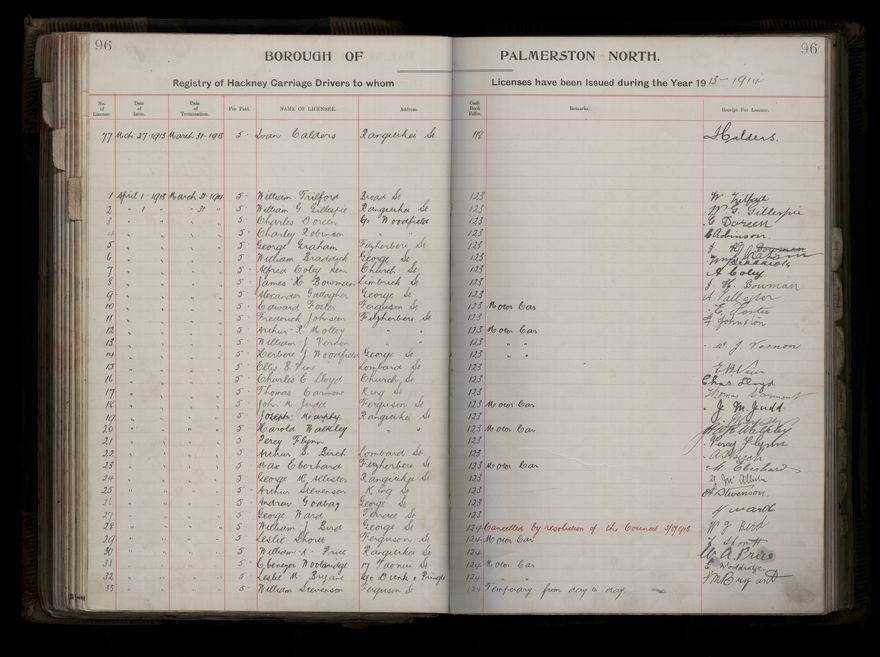 96
BOROUGH OF PALMERSTON NORTH.
96
Registry of Hackney Carriage Drivers to whom Licenses have been Issued during the Year 1913-1914
No. of License. Date of Issue. Date of Termination. Fee Paid. NAME OF LICENSEE. Address. Cash Book Folio. Remarks. Receipt For License.
77 Mch 27-1913 March 31-1913 5- Calders Rangitikei St 118 Calders.
1 April 1-1913 March 31-1914 5- William Trilford Broad St 123 W Trilford
2 " 1 " " 31 " 5- William G. Gillespie Rangitikei St 123 W G. Gillespie
3 " " " " 5- Charles Doreen C/o Woodfield 123 C Doreen
4 " " " " 5- Charley Robinson " " 123 C Robinson
5 " " " " 5- George Graham Fitzherbert St 123 Graham
6 " " " " 5- William Braddick George St 123 Braddick
7 " " " " 5- Alfred Coley Senr Church St 123 A Coley
8 " " " " 5- James H Bowman Limbrick St 123 J H. Bowman
9 " " " " 5- Alexander Gallagher George St 123
10 " " " " 5- Edward Foster Ferguson St 123 Motor Car E. Foster
11 " " " " 5- Frederick Johnston Fitzherbert St 123 F Johnston
12 " " " " 5- Arthur P. Molloy " " 123 Motor Car
13 " " " " 5- William J Vernon 123 " " W J Vernon
14 " " " " 5- Herbert J Woodfield George St 123 " "
15 " " " " 5- Ellis S Vine Lombard St 123 Vine
16 " " " " 5- Charles C Lloyd Church St 123 Chas Lloyd
17 " " " " 5- Thomas Carmont King St 123 Thomas Carmont
18 " " " " 5- John M Judd Ferguson St 123 Motor Car J M Judd
19 " " " " 5- Joseph Murphy Rangitikei St 123
20 " " " " 5- Harold Walkley " " 123 Motor Car Walkley
21 " " " " 5- Percy Flynn 123 Percy Flynn
22 " " " " 5- Arthur S. Birch Lombard St 123
23 " " " " 5- Max Eberhard Fitzherbert St 123 Motor Car M. Eberhard
24 " " " " 5- George McAllister Rangitikei St 123
25 " " " " 5- Arthur Stevenson King St 123 A Stevenson.
26 " " " " 5- Andrew Godbaz George St 123
27 " " " " 5- George Ward Terrace St 123 G Ward
28 " " " " 5- William J. Bird George St 124 Cancelled by resolution of the Council Wm J Bird
29 " " " " 5- Leslie Shortt Ferguson St 124 Motor Car L Shortt
30 " " " " 5- William A. Price Rangitikei St 124 W. A. Price
31 " " " " 5- Ebenezer Wooldridge 124 Motor Car E Wooldridge
32 " " " " 5- Leslie M. Bryant C/o Dunk & Pringle 124 " " L M Bryant
33 " " " " 5- William Stevenson Ferguson St 124 Temporary from day to day